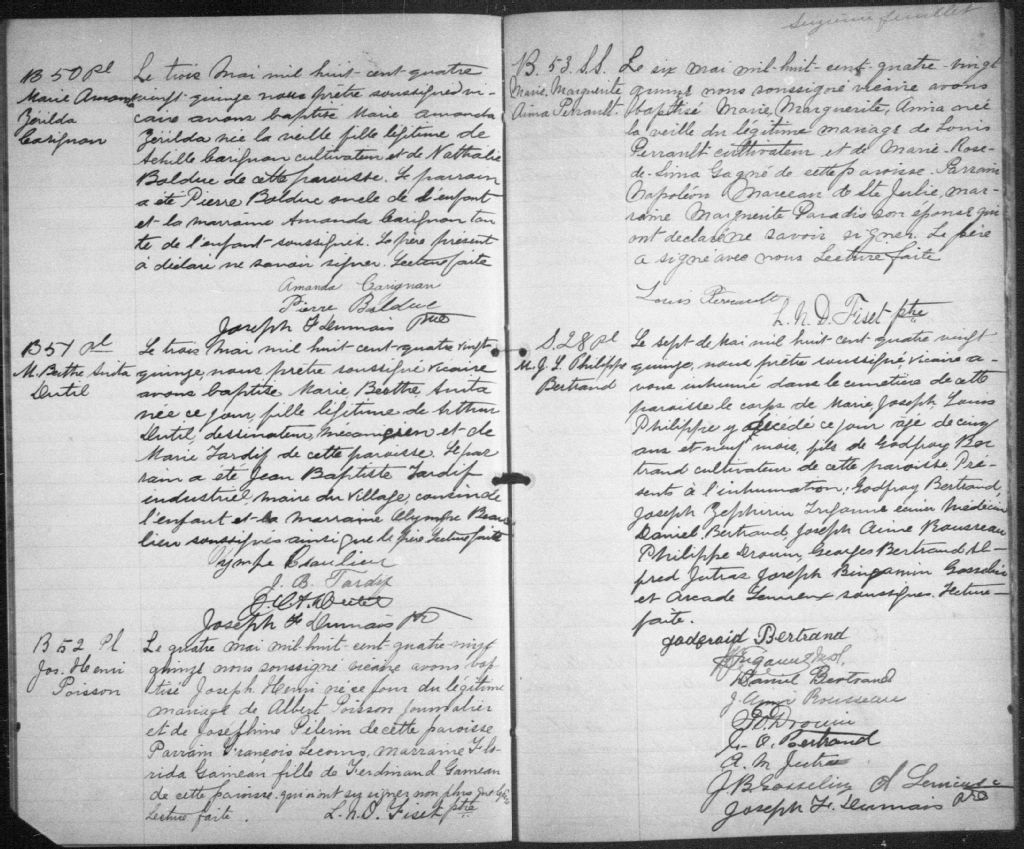 B 50 pl
Marie Amanda
Zérilda
Carignan
Le trois Mai mil huit-cent-quatre
vingt-quinze nous prêtre soussigné vi-
caire avons baptisé Marie Amanda
Zérilda née la veille fille légitime de
Achille Carignan cultivateur et de Nathalie
Bolduc de cette paroisse. Le parrain
a été Pierre Bolduc oncle de l'enfant
et la marraine Amanda Carignan tan
te de l'enfant soussignés. Le père présent
a déclaré ne savoir signer. Lecture faite
Amanda Carignan
Pierre Bolduc
Joseph F Dumais Ptre
B 51 pl
M. Berthe Anita
Dutil
Le trois Mai mil huit cent-quatre vingt
quinze, nous prêtre soussigné vicaire
avons baptisé Marie Berthe, Anita
née ce jour, fille légitime de Arthur
Dutil, dessinateur, mécanicien et de
Marie Tardif de cette paroisse. Le par
rain a été Jean Baptiste Tardif
industriel, maire du Village, cousin de
l'enfant et la marraine Olympe Beau
lieu soussignés ainsi que le père. Lecture faite
Olympe Beaulieu
J. B. Tardif
Dutil
Joseph F Dumais Ptr
B 52 Pl
Jos. Henri
Poisson
Le quatre mai mil-huit-cent-quatre-vingt
quinze nous soussigné vicaire avons bap
tisé Joseph Henri né ce jour du légitime
mariage de Albert Poisson journalier
et de Joséphine Pélerin de cette paroisse
Parrain François Lecours, marraine Flo
rida Gameau fille de Ferdinand Gameau
de cette paroisse qui n'ont su signer non plus que
Lecture faite. L. N. D. Fiset ptre
feuillet
B. 53. S.S.
Marie, Marguerite
Anna Perrault.
Le six mai mil-huit-cent-quatre-vingt
quinze nous soussigné vicaire avons
baptisé Marie, Marguerite, Anna née
la veille du légitime mariage de Louis
Perrault cultivateur et de Marie-Rose-
de-Lima Gagné de cette paroisse. Parrain
Napoléon Marceau de Ste Julie, mar-
raine Marguerite Paradis son épouse qui
ont déclaré ne savoir signer. Le père
a signé avec nous Lecture faite
Louis Perreault
L. N. D. Fiset ptre
S. 28 pl
M. J. L. Philippe
Bertrand
Le sept de Mai mil huit cent quatre vingt
quinze, nous prêtre soussigné vicaire a-
vons inhumé dans le cimetière de cette
paroisse le corps de Marie, Joseph, Louis
Philippe y décédé ce jour age de cinq
ans et neuf mois, fils de Godfroy Ber
trand cultivateur de cette paroisse. Pré-
sents à l'inhumation: Godfroy Bertrand,
Joseph Zéphirin Triganne sénior Médecin
Daniel Bertrand, Joseph Aimé Rousseau
Philippe Drouin, Georges Bertrand Al-
fred Jutras Joseph Bingamin Gosselin
et Arcade Lemieux soussignés. Lecture-
faite.
godfroid Bertrand
Daniel Bertrand
J. Aimé Rousseau
Ph Drouin
G. O. Bertrand
A. M Jutras
J B Gosselin A Lemieux
Joseph F. Dumais Ptre